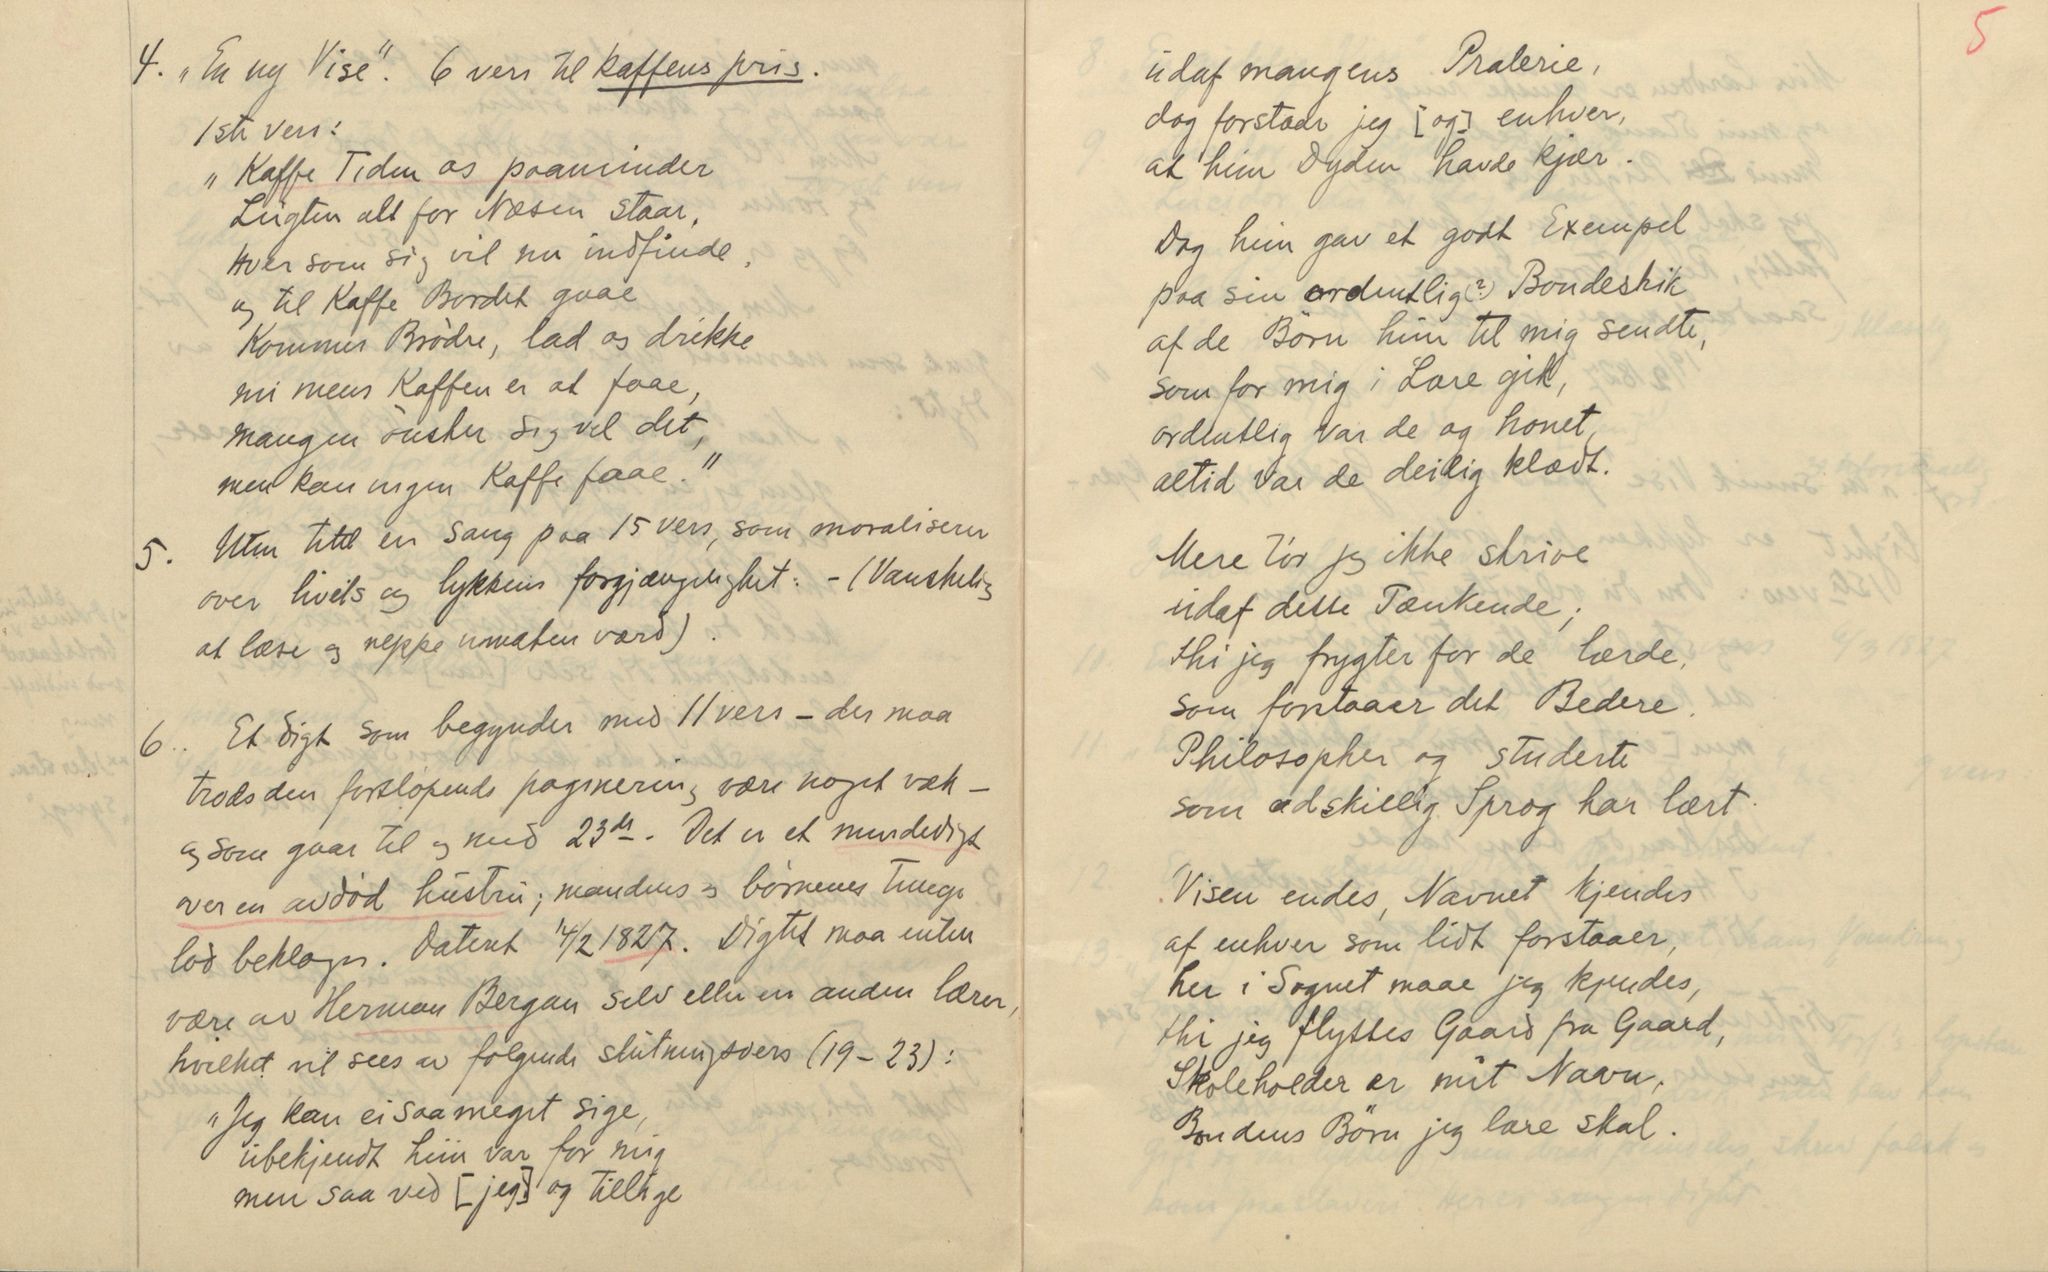 4. „En ny Vise". 6 vers til kaffens pris.
1ste vers:
„Kaffe Tiden os paaminder
Lugten alt for Næsen staar,
Hver som sig vil nu indfinde,
og til Kaffe Bordet gaae
Kommer Brødre, lad os drikke
nu mens Kaffen er at faae,
mangen ønsker sig vel det,
men kan ingen Kaffe faae."
5. Uten titel en sang paa 15 vers, som moraliserer
over livets og lykkens forgjængelighet. - (Vanskelig
at læse og neppe umaken værd).
6. Et digt som begynder med 11 vers - der maa
trods den fortløpende paginering være noget væk -
og som gaar til og med 23de. Det er et mindedigt
over en avdød hustru; mandens og børnenes tunge
lod beklages. Datert 14/2 1827. Digtet maa enten
være av Herman Bergan selv eller en anden lærer,
hvilket vil sees av følgende slutningsvers (19-23):
„Jeg kan ei saa meget sige,
ubekjendt hun var for mig
men saa ved [jeg] og tillige
5
udaf mangens Pralerie,
dog forstaar jeg [og] enhver,
at hun Dyden havde kjær.
Dog hun gav et godt Exempel
paa sin ordentlig(?) Bondeskik
af de Börn hun til mig sendte,
som for mig i Lære gik,
ordentlig var de og honet,
altid var de deilig klædt.
Mere Tör jeg ikke skrive
udaf desse Tænkende;
thi jeg frygter for de lærde,
som forstaaer det Bedere.
Philosopher og studerte
som adskillig Sprog har lært.
Visen endes, Navnet kjendes
af enhver som lidt forstaaer,
her i Sognet maae jeg kjendes,
thi jeg flyttes Gaard fra Gaard,
Skoleholder er mit Navn,
Bondens Börn jeg lære skal.